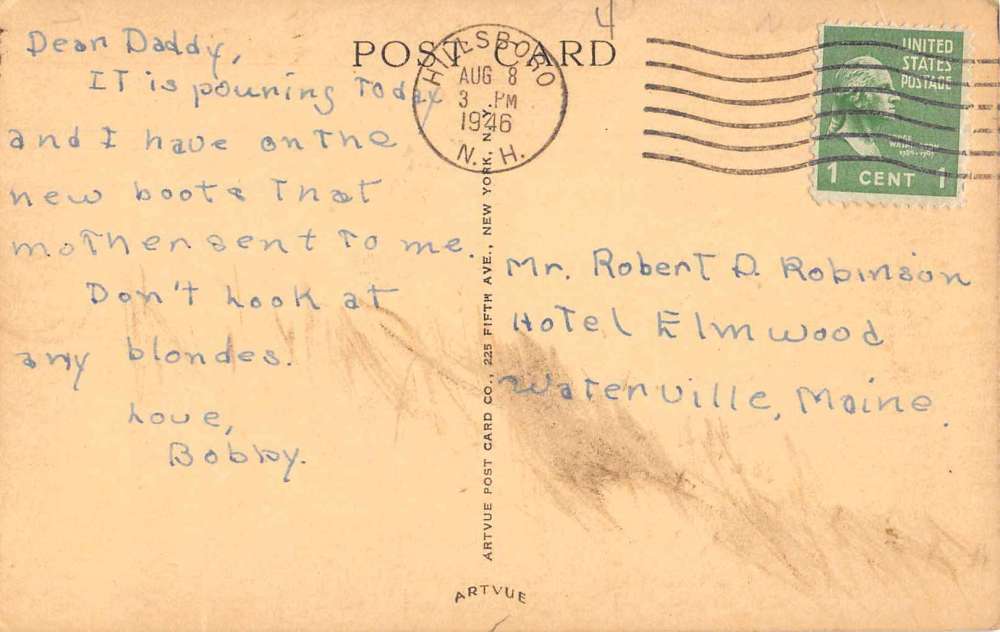 POST CARD
Dear Daddy,
IT is pouring Today
and I have on The
new boots That
moTher sent To me.
Don't Look at
any blondes.
Love,
Bobby.
HILLSBORO
AUG 8
3 PM
1946
N. H.
UNITED
STATES
POSTAGE
1 CENT 1
Mr. Robert D. Robinson
HoTel Elmwood
WaTerville, Maine.
ARTVUE POST CARD CO., 225 FIFTH AVE., NEW YORK, N.Y.
ARTVUE